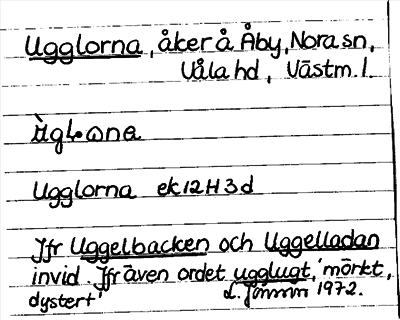 Ugglorna, åker å Åby, Nora sn,
Våla hd, Västm. l.
Ugglorna ek 12H3d
Jfr Uggelbacken och Uggelladan
invid. Jfr även ordet ugglugt, 'mörkt,
dystert' L. 1972.